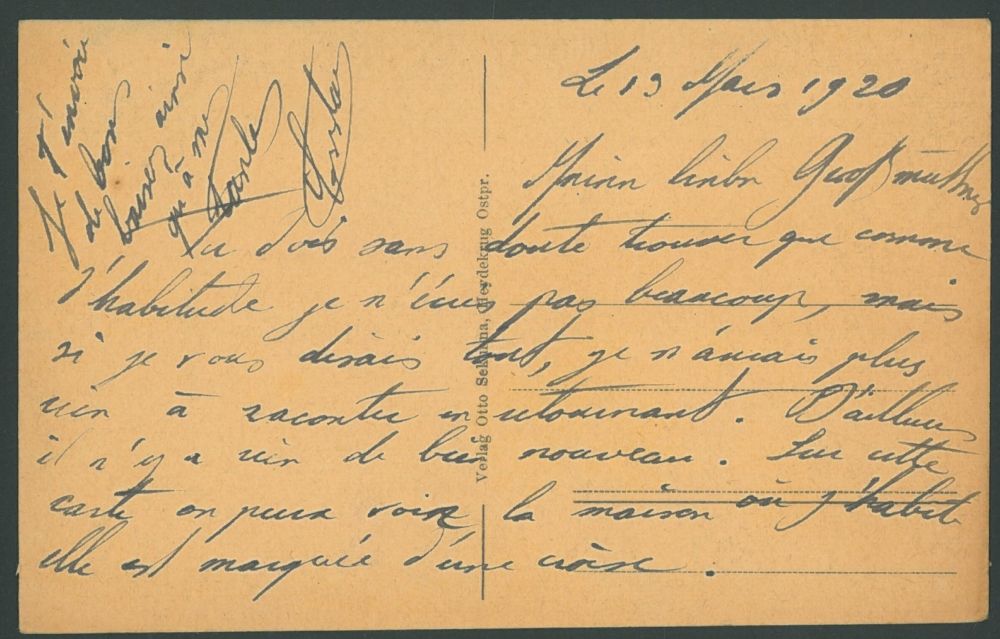 Le 13 Mars 1920
Meine liebe Großmutter
Tu dois sans doute trouver que comme
d'habitude je n'écris pas beaucoup, mais
si je vous dirais tout, je n'aurais plus
rien à raconter en retournant. D'ailleurs
il n'y a rien de bien nouveau. Sur cette
carte on peux voire la maison où j'habite
elle est marquée d'une croise.
Je t'envoie
de bons
baisers ainsi
qu'à
Verlag Otto Sekunna, Heydekrug Ostpr.